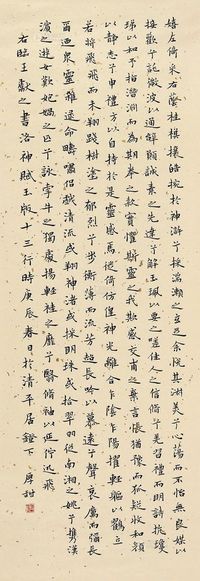 嬉左倚采右蔭桂棋攘皓捥於神滸兮採湍瀨之玄芝余悅其淑美兮心蕩而不怡無良媒以
接歡兮託微波以通辭願誠素之先達兮解玉珮以要之嗟佳人之信脩兮羌習禮而明詩抗瓊
珶以和予兮指潛淵而為期執拳之款實兮懼斯靈之我欺感交甫之棄言悵猶豫而狐疑收和顏
以靜志兮申禮防以自持於是靈感焉徙倚仿偟神光離合乍陰乍陽擢輕軀以鶴立
若將飛而未翔踐椒塗之郁烈兮步衡薄而流芳超長吟以慕遠兮聲哀厲而彌長
爾迺衆靈雜遝命疇嘯侶或戲清流或翔神渚或採明珠或拾翠羽從南湘之二姚兮攜漢
濱之遊女歎媧之無匹兮詠牽牛之獨處揚輕袿之猗靡兮翳脩袖以延佇迅飛
右臨王獻之書洛神賦玉版十三行時庚辰春日於清平居鐙下